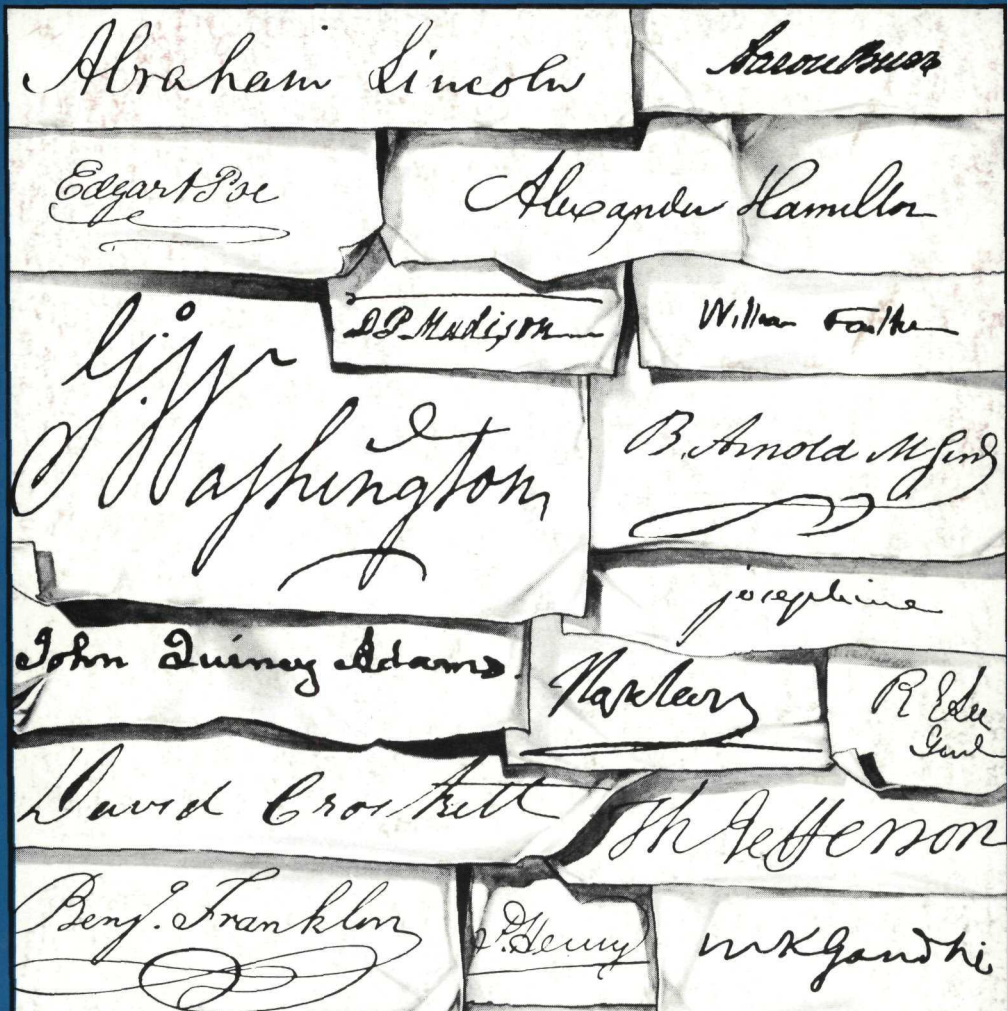 Abraham Lincoln
Aaron Burr
Edgar A Poe
Alexander Hamilton
D. P. Madison
William Faulkner
G. Washington
B. Arnold M Genl
josephine
John Quincy Adams
Napoleon
R E Lee
Genl
David Crockett
Th Jefferson
Benj. Franklin
P. Henry
mKGandhi